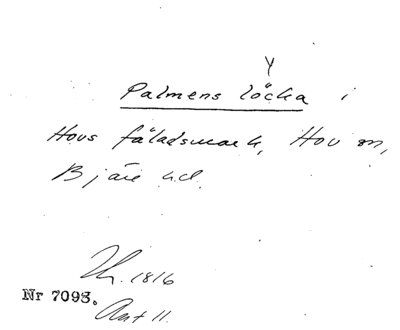 Palmens löcka i
Hovs fäladsmark, Hov sn,
Bjäre hd.
Th. 1816
Nr 7098.
Ant 11.